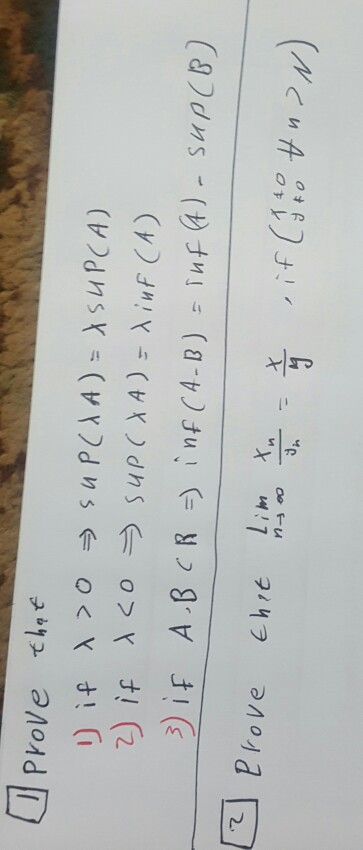 1 Prove that
1) if λ > 0 ⇒ sup(λA) = λ sup(A)
2) if λ < 0 ⇒ sup(λA) = λ inf(A)
3) if A,B ⊂ R ⇒ inf(A-B) = inf(A) - sup(B)
2 Prove that Lim n→∞ xn/yn = x/y , if (y≠0 yn≠0 ∀ n > N)